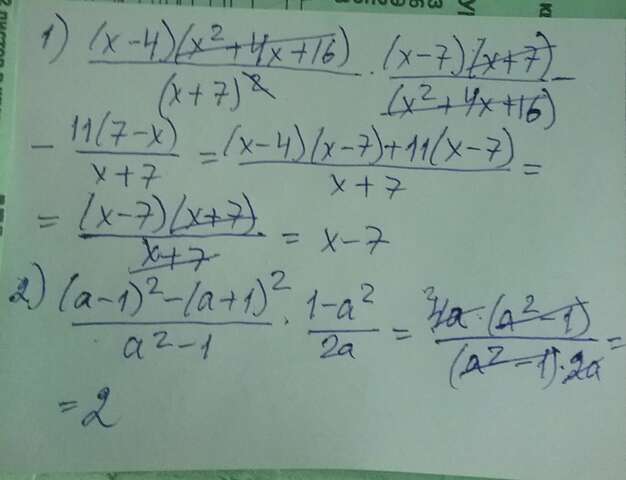 1) (x-4)(x²+4x+16)/(x+7)² · (x-7)(x+7)/(x²+4x+16) -
- 11(7-x)/x+7 = (x-4)(x-7)+11(x-7)/x+7 =
= (x-7)(x+7)/x+7 = x-7
2) (a-1)²-(a+1)²/a²-1 · 1-a²/2a = 4a·(a²-1)/(a²-1)·2a =
= 2